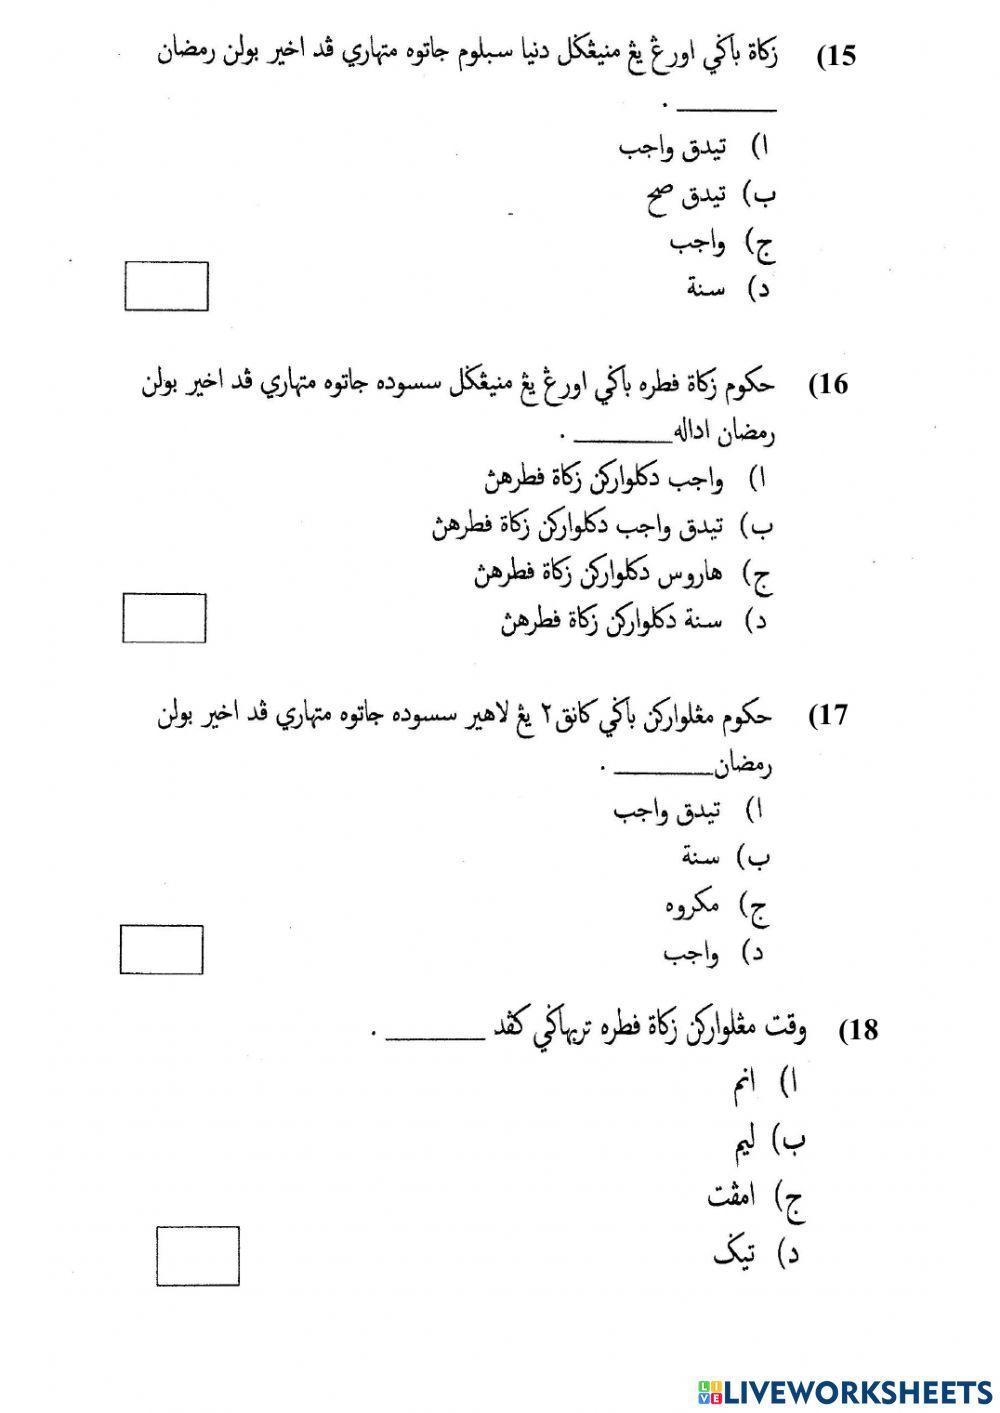 15) زكاة باڬي اورڠ يڠ منيڠڬل دنيا سبلوم جاتوه متهاري ڤد اخير بولن رمضان
________ .
ا) تيدق واجب
ب) تيدق صح
ج) واجب
د) سنة
16) حكوم زكاة فطره باڬي اورڠ يڠ منيڠڬل سسوده جاتوه متهاري ڤد اخير بولن
رمضان اداله________ .
ا) واجب دكلواركن زكاة فطرهڽ
ب) تيدق واجب دكلواركن زكاة فطرهڽ
ج) هاروس دكلواركن زكاة فطرهڽ
د) سنة دكلواركن زكاة فطرهڽ
17) حكوم مڠلواركن باڬي كانق٢ يڠ لاهير سسوده جاتوه متهاري ڤد اخير بولن
رمضان________ .
ا) تيدق واجب
ب) سنة
ج) مكروه
د) واجب
18) وقت مڠلواركن زكاة فطره تربهاڬي كڤد ________ .
ا) انم
ب) ليم
ج) امڤت
د) تيݢ
LIVEWORKSHEETS